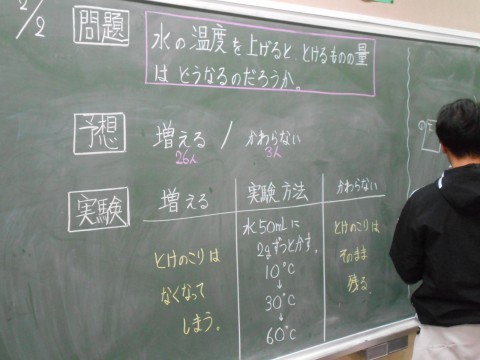 2/2
問題
水の温度を上げると、とけるものの量
はどうなるのだろうか。
予想
増える / かわらない
26人 3人
実験
増える 実験方法 かわらない
とけのこりは
なくなって
しまう。
水50mLに
2gずつとかす。
10℃
↓
30℃
↓
60℃
とけのこりは
そのまま
残る。